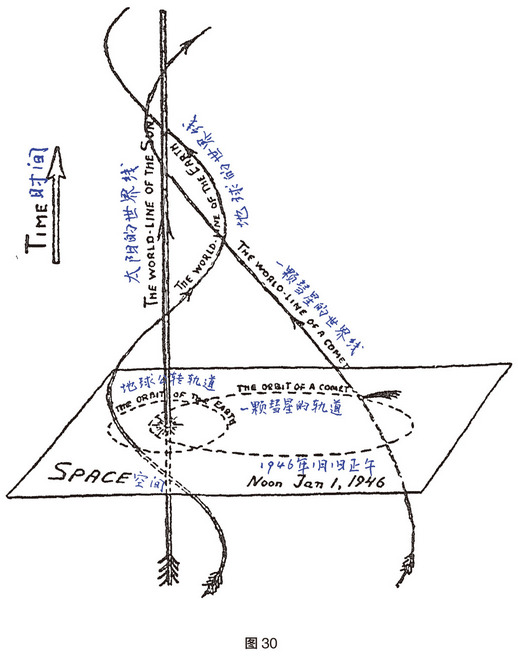 TIME 时间
太阳的世界线
THE WORLD-LINE OF THE SUN
地球的世界线
THE WORLD-LINE OF THE EARTH
一颗彗星的世界线
THE WORLD-LINE OF A COMET
地球公转轨道
THE ORBIT OF THE EARTH
THE ORBIT OF A COMET
一颗彗星的轨道
SPACE 空间
1946年1月1日正午
Noon Jan 1, 1946
图 30